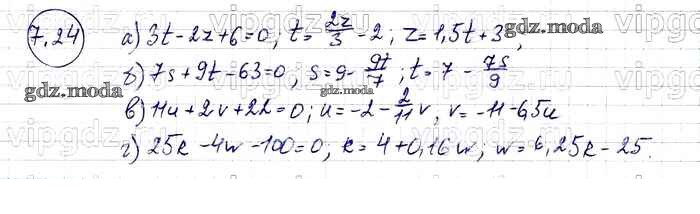 7.24
а) 3t - 2z + 6 = 0; t = 2z/3 - 2; z = 1,5t + 3;
б) 7s + 9t - 63 = 0, s = 9 - 9t/7; t = 7 - 7s/9
в) 11u + 2v + 22 = 0; u = -2 - 2/11 v, v = -11 - 5,5u
г) 25k - 4w - 100 = 0; k = 4 + 0,16w; w = 6,25k - 25.
gdz.moda
gdz.moda
gdz.moda
gdz.moda
vipgdz